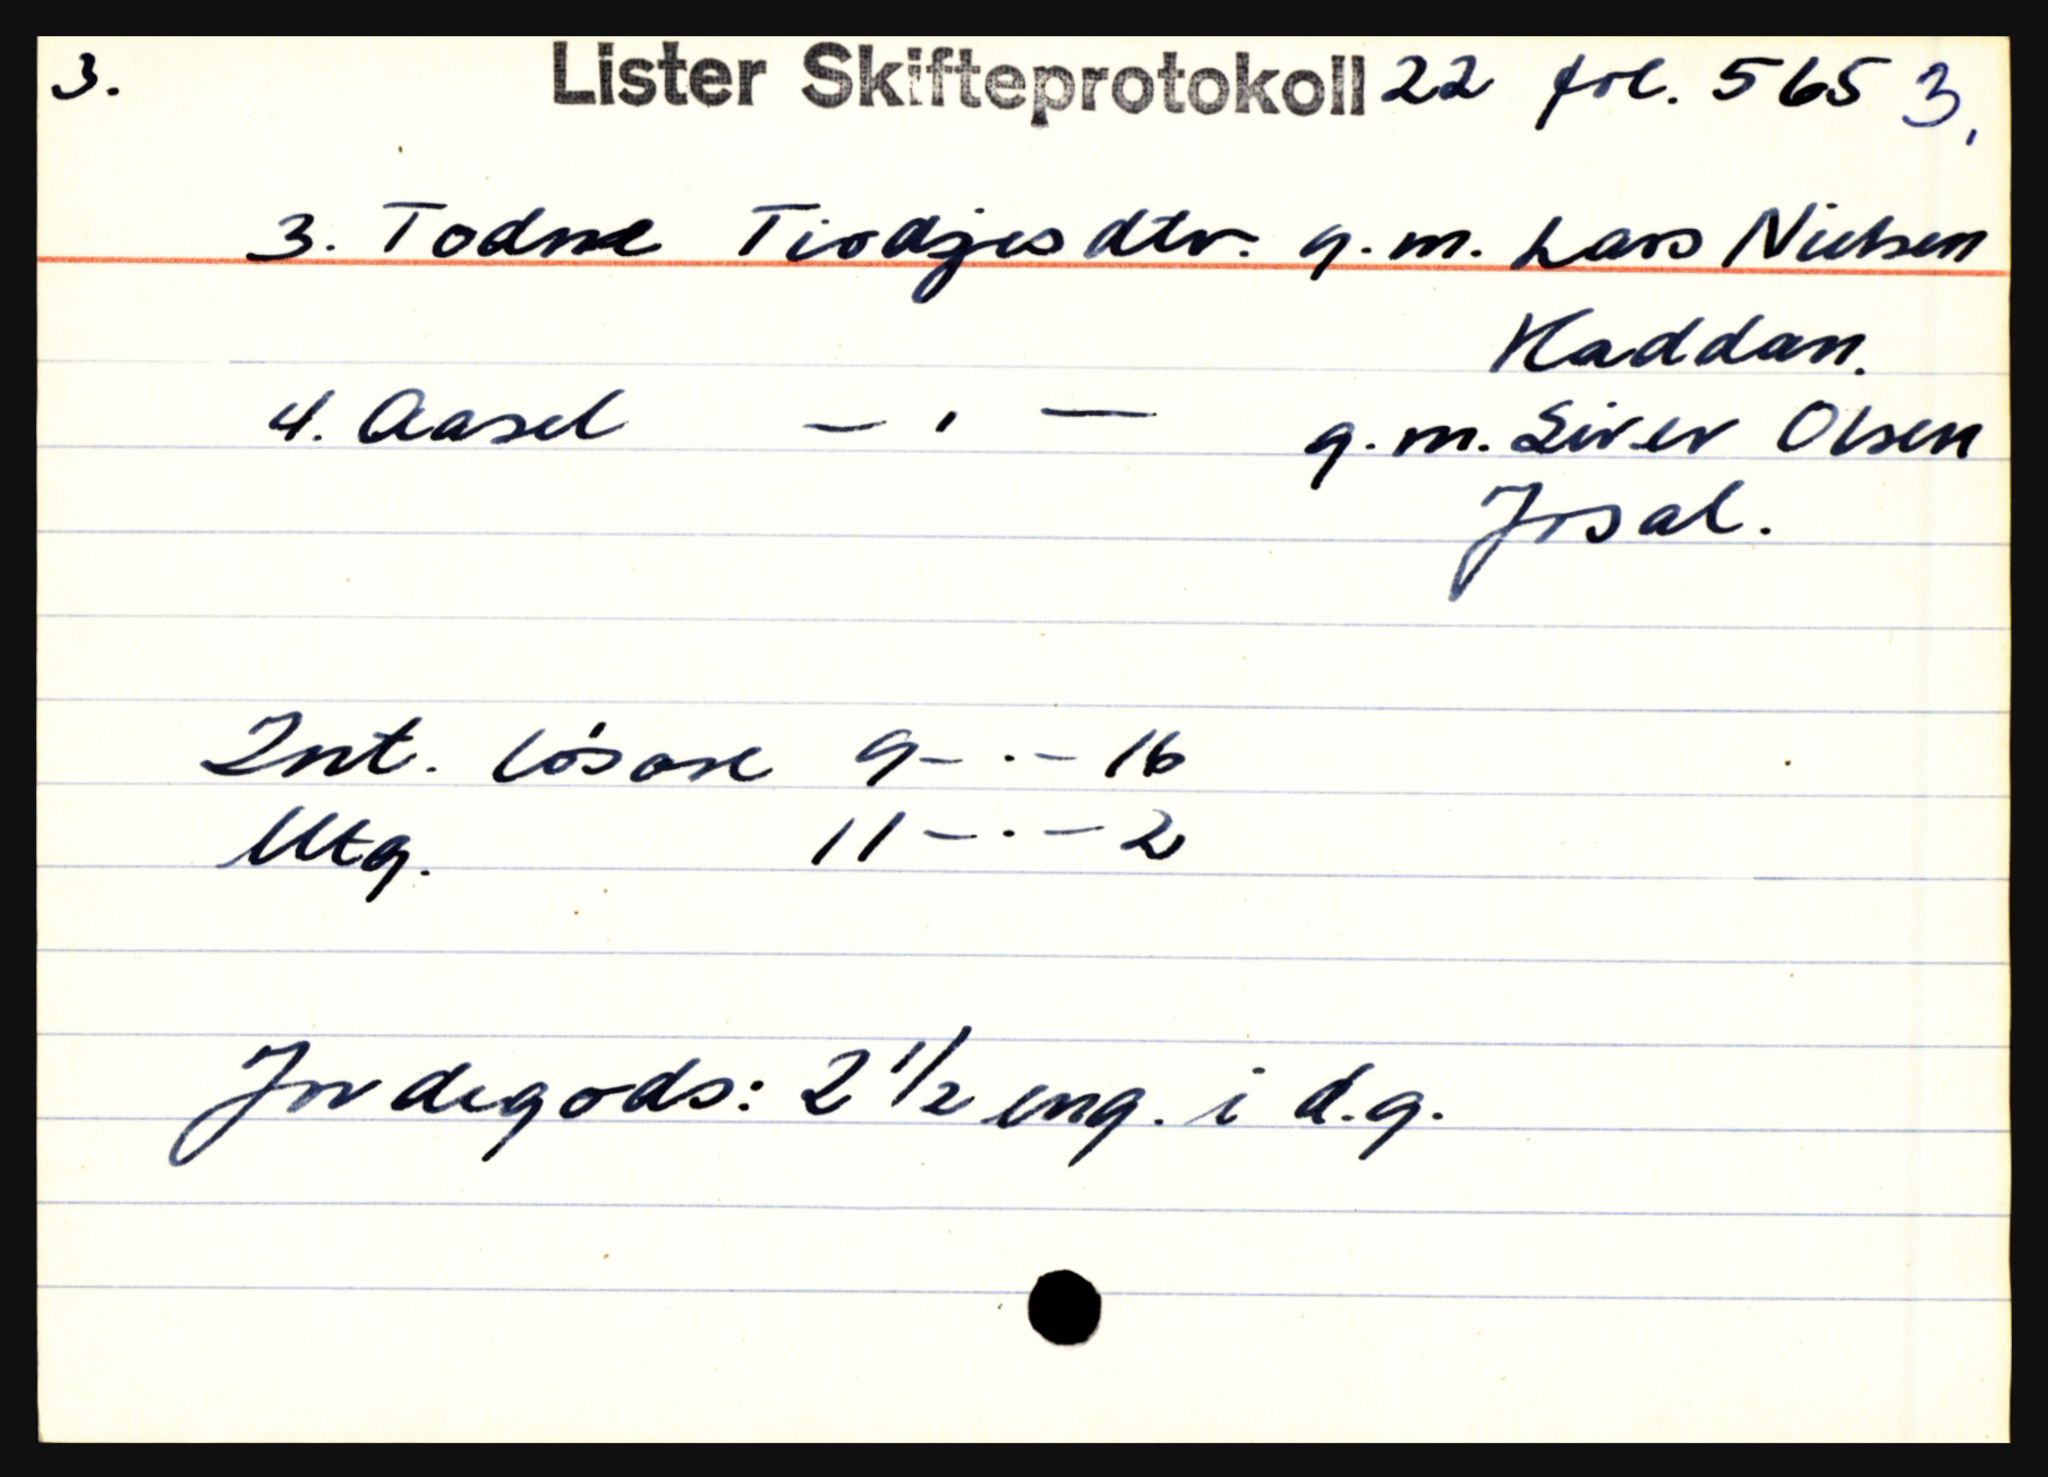 3. Lister Skifteprotokoll 22 fol. 565 3,
3. Todne Tiodjesdtr. g.m. Lars Nielsen
Haddan.
4. Aasel — ' — g.m. Siver Olsen
Josal.
Int. løsøre 9 - . - 16
Utg. 11 - . - 2
Jordegods: 2 1/2 eng. i d.g.